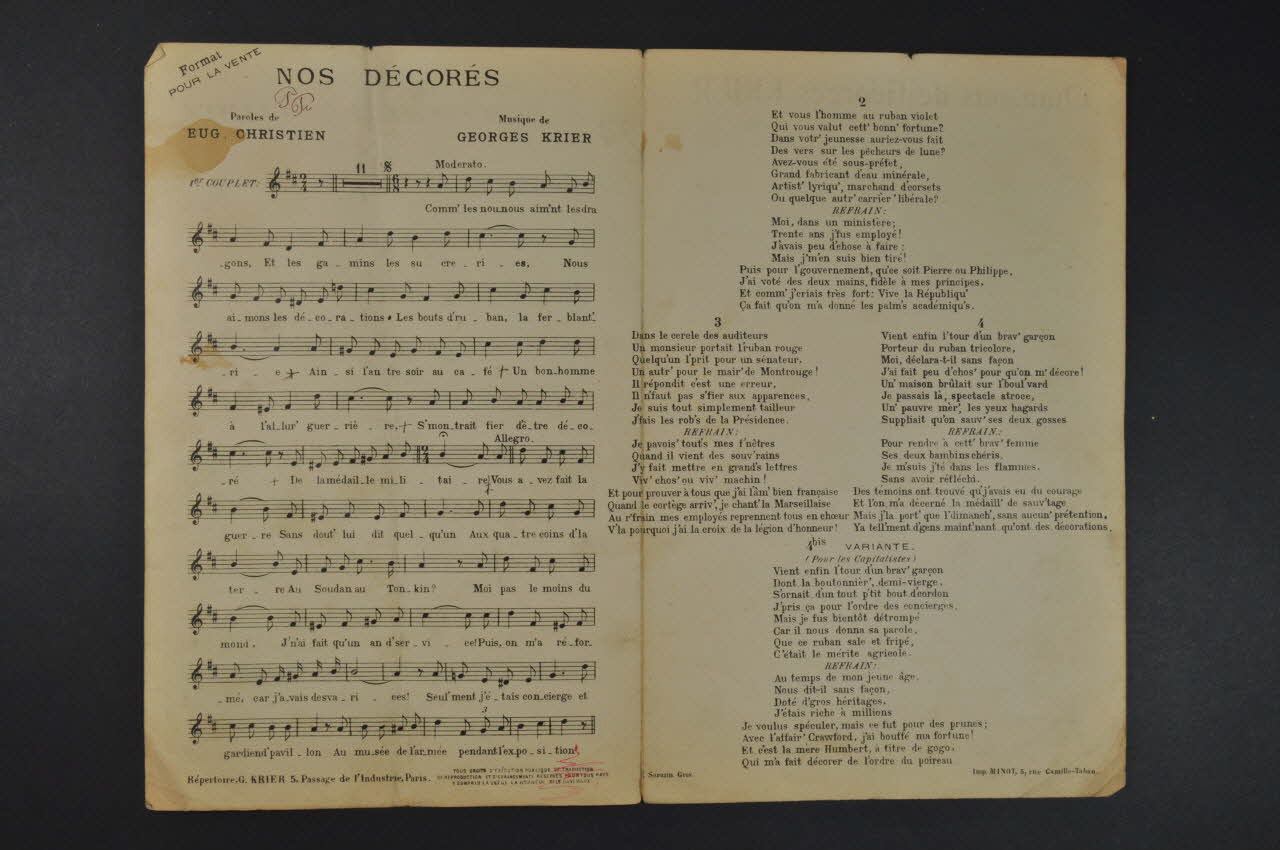 Format
POUR LA VENTE
NOS DÉCORÉS
Paroles de
EUG. CHRISTIEN
Musique de
GEORGES KRIER
Moderato.
11
1er COUPLET:
Comm' les nou_nous aim'nt les dra
_gons, Et les ga_mins les su_cre_ri_es, Nous
ai_mons les dé_co_ra_tions Les bouts d'ru_ban, la fer_blant'
_ri_e Ain_si l'an tre soir au ca_fé Un bon_homme
à l'al_lur' guer_riè_re, S'mon_trait fier d'ê_tre dé_co_
Allegro.
_ré De la médail_le mi_li_tai_re Vous a_vez fait la
guer_re Sans dout' lui dit quel_qu'un Aux qua_tre coins d'la
ter_re Au Soudan au Ton_kin? Moi pas le moins du
mond, J'n'ai fait qu'un an d'ser_vi_ce! Puis, on m'a ré_for_
_mé, car j'a_vais des va_ri_ces! Seul'ment j'é_tais con_cierge et
3
gardien d'pavil_lon Au mu_sée de l'ar_mée pendant l'ex_po_si_tion!
Répertoire. G. KRIER 5. Passage de l'Industrie, Paris.
TOUS DROITS D'EXÉCUTION PUBLIQUE DE TRADUCTION
DE REPRODUCTION ET D'ARRANGEMENTS RÉSERVÉS POUR TOUS PAYS
Y COMPRIS LA SUÈDE LA NORVÈGE
2
Et vous l'homme au ruban violet
Qui vous valut cett' bonn' fortune?
Dans votr' jeunesse auriez-vous fait
Des vers sur les pêcheurs de lune?
Avez-vous été sous-préfet,
Grand fabricant d'eau minérale,
Artist' lyriqu', marchand d'corsets
Ou quelque autr' carrier' libérale?
REFRAIN:
Moi, dans un ministère;
Trente ans j'fus employé!
J'avais peu d'chose à faire:
Mais j'm'en suis bien tiré!
Puis pour l'gouvernement, qu'ce soit Pierre ou Philippe,
J'ai voté des deux mains, fidèle à mes principes.
Et comm' j'criais très fort: Vive la Républiqu'
Ça fait qu'on m'a donné les palm's académiqu's.
3
Dans le cercle des auditeurs
Un monsieur portait l'ruban rouge
Quelqu'un l'prit pour un sénateur.
Un autr' pour le mair' de Montrouge!
Il répondit c'est une erreur,
Il n'faut pas s'fier aux apparences,
Je suis tout simplement tailleur
J'fais les rob's de la Présidence.
REFRAIN:
Je pavois' tout's mes f'nêtres
Quand il vient des souv'rains
J'y fait mettre en grand's lettres
Viv' chos' ou viv' machin!
Et pour prouver à tous que j'ai l'âm' bien française
Quand le cortège arriv', je chant' la Marseillaise
Au r'frain mes employés reprennent tous en chœur
V'la pourquoi j'ai la croix de la légion d'honneur!
4
Vient enfin l'tour d'un brav' garçon
Porteur du ruban tricolore,
Moi, déclara-t-il sans façon
J'ai fait peu d'chos' pour qu'on m' décore!
Un' maison brûlait sur l'boul'vard
Je passais là, spectacle atroce,
Un' pauvre mèr', les yeux hagards
Suppliait qu'on sauv' ses deux gosses
REFRAIN:
Pour rendre à cett' brav' femme
Ses deux bambins chéris.
Je m'suis j'té dans les flammes.
Sans avoir réfléchi.
Des témoins ont trouvé qu'j'avais eu du courage
Et l'on m'a décerné la médaill' de sauv'tage
Mais j'la port' que l'dimanch', sans aucun' prétention,
Ya tell'ment d'gens maint'nant qu'ont des décorations.
4bis VARIANTE.
(Pour les Capitalistes)
Vient enfin l'tour d'un brav' garçon
Dont la boutonnièr', demi-vierge.
S'ornait d'un tout p'tit bout d'cordon
J'pris ça pour l'ordre des concierges.
Mais je fus bientôt détrompé
Car il nous donna sa parole,
Que ce ruban sale et fripé,
C'était le mérite agricole.
REFRAIN:
Au temps de mon jeune âge.
Nous dit-il sans façon,
Doté d'gros héritages,
J'étais riche à millions
Je voulus spéculer, mais ce fut pour des prunes;
Avec l'affair' Crawford, j'ai bouffé ma fortune!
Et c'est la mère Humbert, à titre de gogo,
Qui m'a fait décorer de l'ordre du poireau
Sarazin Grav.
Imp. MINOT, 5, rue Camille-Tahan.